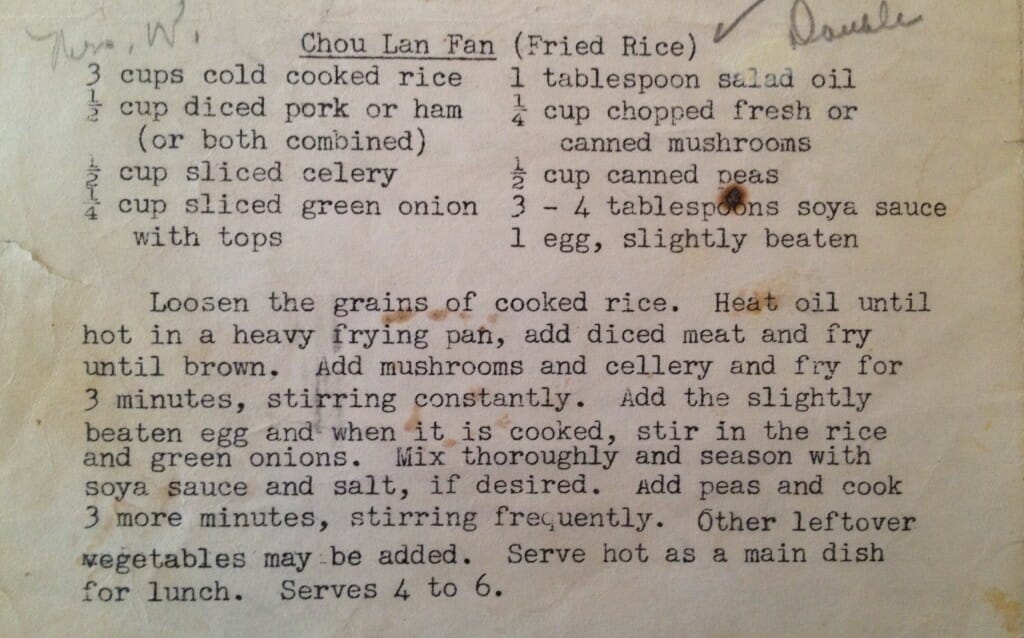 W.
Double
Chou Lan Fan (Fried Rice) ✓
3 cups cold cooked rice
½ cup diced pork or ham
(or both combined)
½ cup sliced celery
¼ cup sliced green onion
with tops
1 tablespoon salad oil
¼ cup chopped fresh or
canned mushrooms
½ cup canned peas
3 - 4 tablespoons soya sauce
1 egg, slightly beaten
Loosen the grains of cooked rice. Heat oil until
hot in a heavy frying pan, add diced meat and fry
until brown. Add mushrooms and cellery and fry for
3 minutes, stirring constantly. Add the slightly
beaten egg and when it is cooked, stir in the rice
and green onions. Mix thoroughly and season with
soya sauce and salt, if desired. Add peas and cook
3 more minutes, stirring frequently. Other leftover
vegetables may be added. Serve hot as a main dish
for lunch. Serves 4 to 6.